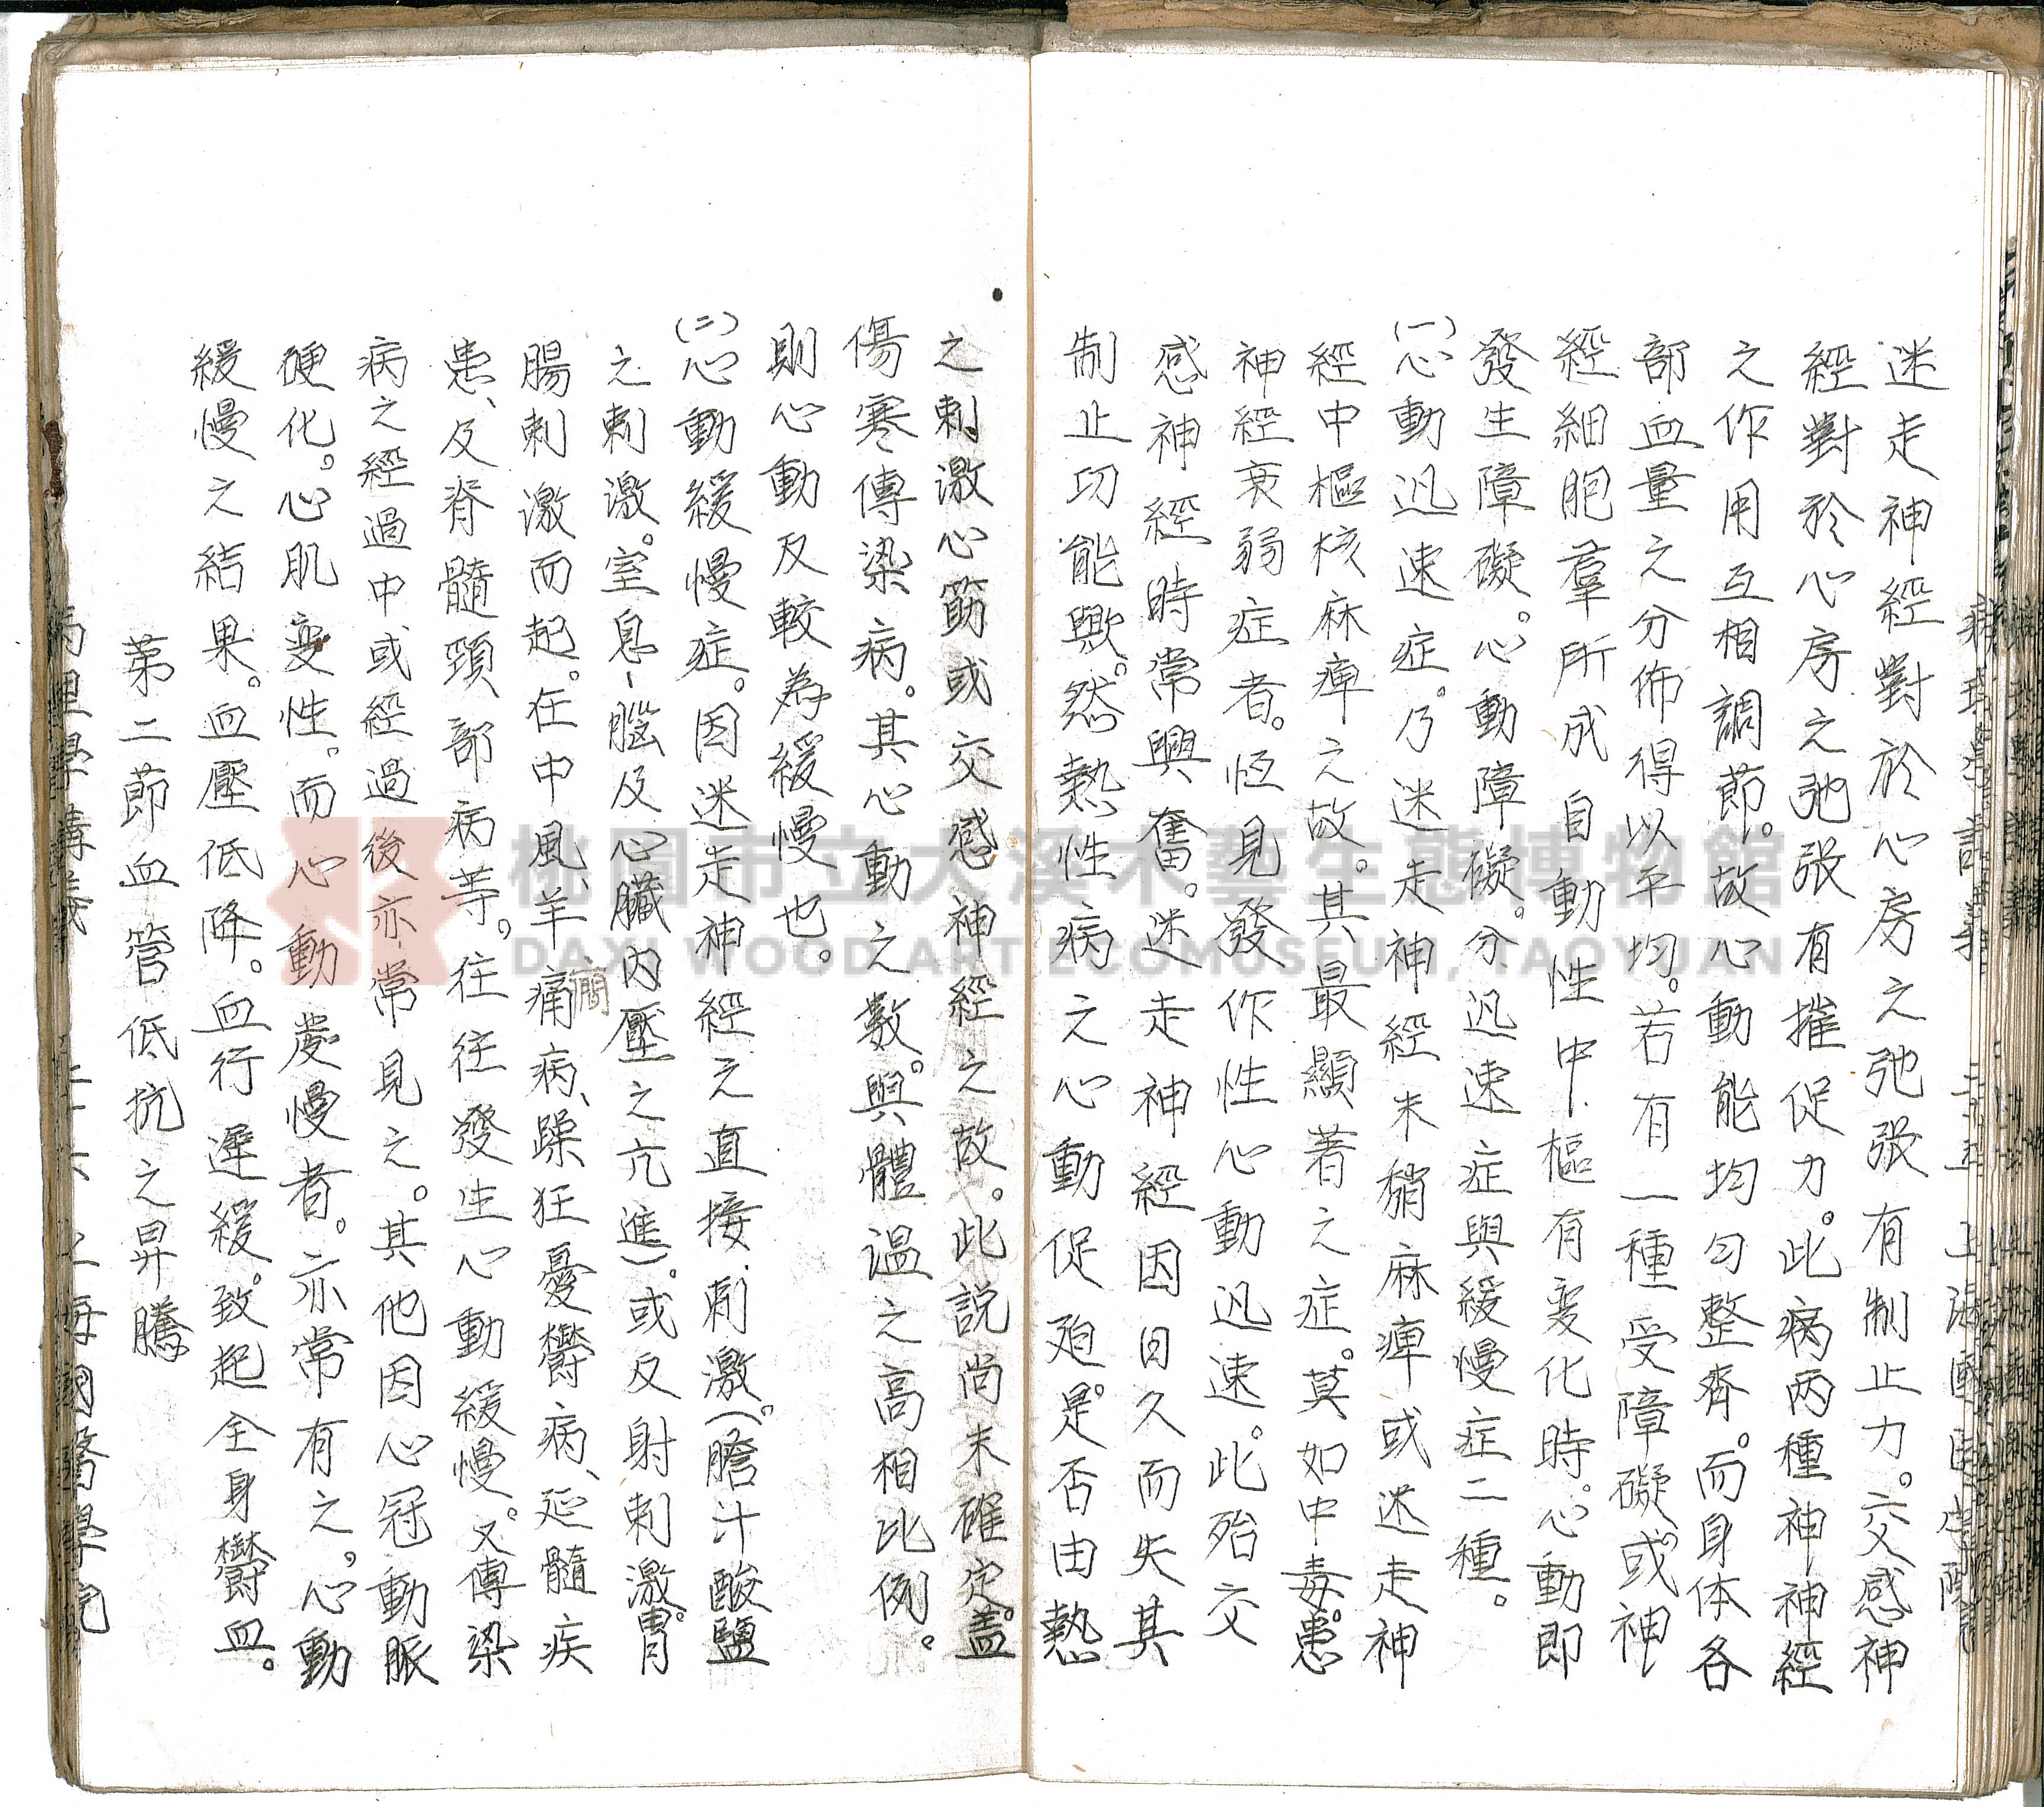 迷走神經對於心房之弛張有制止力。交感神
經對於心房之弛張有摧促力。此病两種神神經
之作用互相調節。故心動能均匀整齊。而身体各
部血量之分佈得以平均。若有一種受障礙。或神
經細胞羣所成自動性中樞有变化時。心動即
發生障礙。心動障礙。分迅速症與緩慢症二種。
(一)心動迅速症。乃迷走神經末稍麻痺或迷走神
經中樞核麻痺之故。其最顯著之症。莫如中毒。患
神經衰弱症者。恆見發作性心動迅速。此殆交
感神經時常興奮。迷走神經因日久而失其
制止功能歟。然熱性病之心動促廹。是否由熱
之刺激心筋或交感神經之故。此説尚未確定。蓋
傷寒傳染病。其心動之數。與體温之高相比例。
則心動反較為緩慢也。
(二)心動緩慢症。因迷走神經之直接刺激。(膽汁酸鹽
之刺激。室息、腦及心臟内壓之亢進)。或反射刺激。胃
腸刺激而起。在中風、羊痛病、躁狂憂欝病、延髓疾
癇
患、及脊髓頸部病等。往往發生心動緩慢。又傳染
病之經過中或經過後亦常見之。其他因心冠動脈
硬化。心肌变性。而心動慶慢者。亦常有之。心動
緩慢之結果。血壓低降。血行遲緩。致起全身欝血。
第二節血管低抗之昇騰
病理學講義 二十六 上海國醫學院
桃園市立大溪木藝生態博物館
DAXI WOOD ART ECOMUSEUM, TAOYUAN